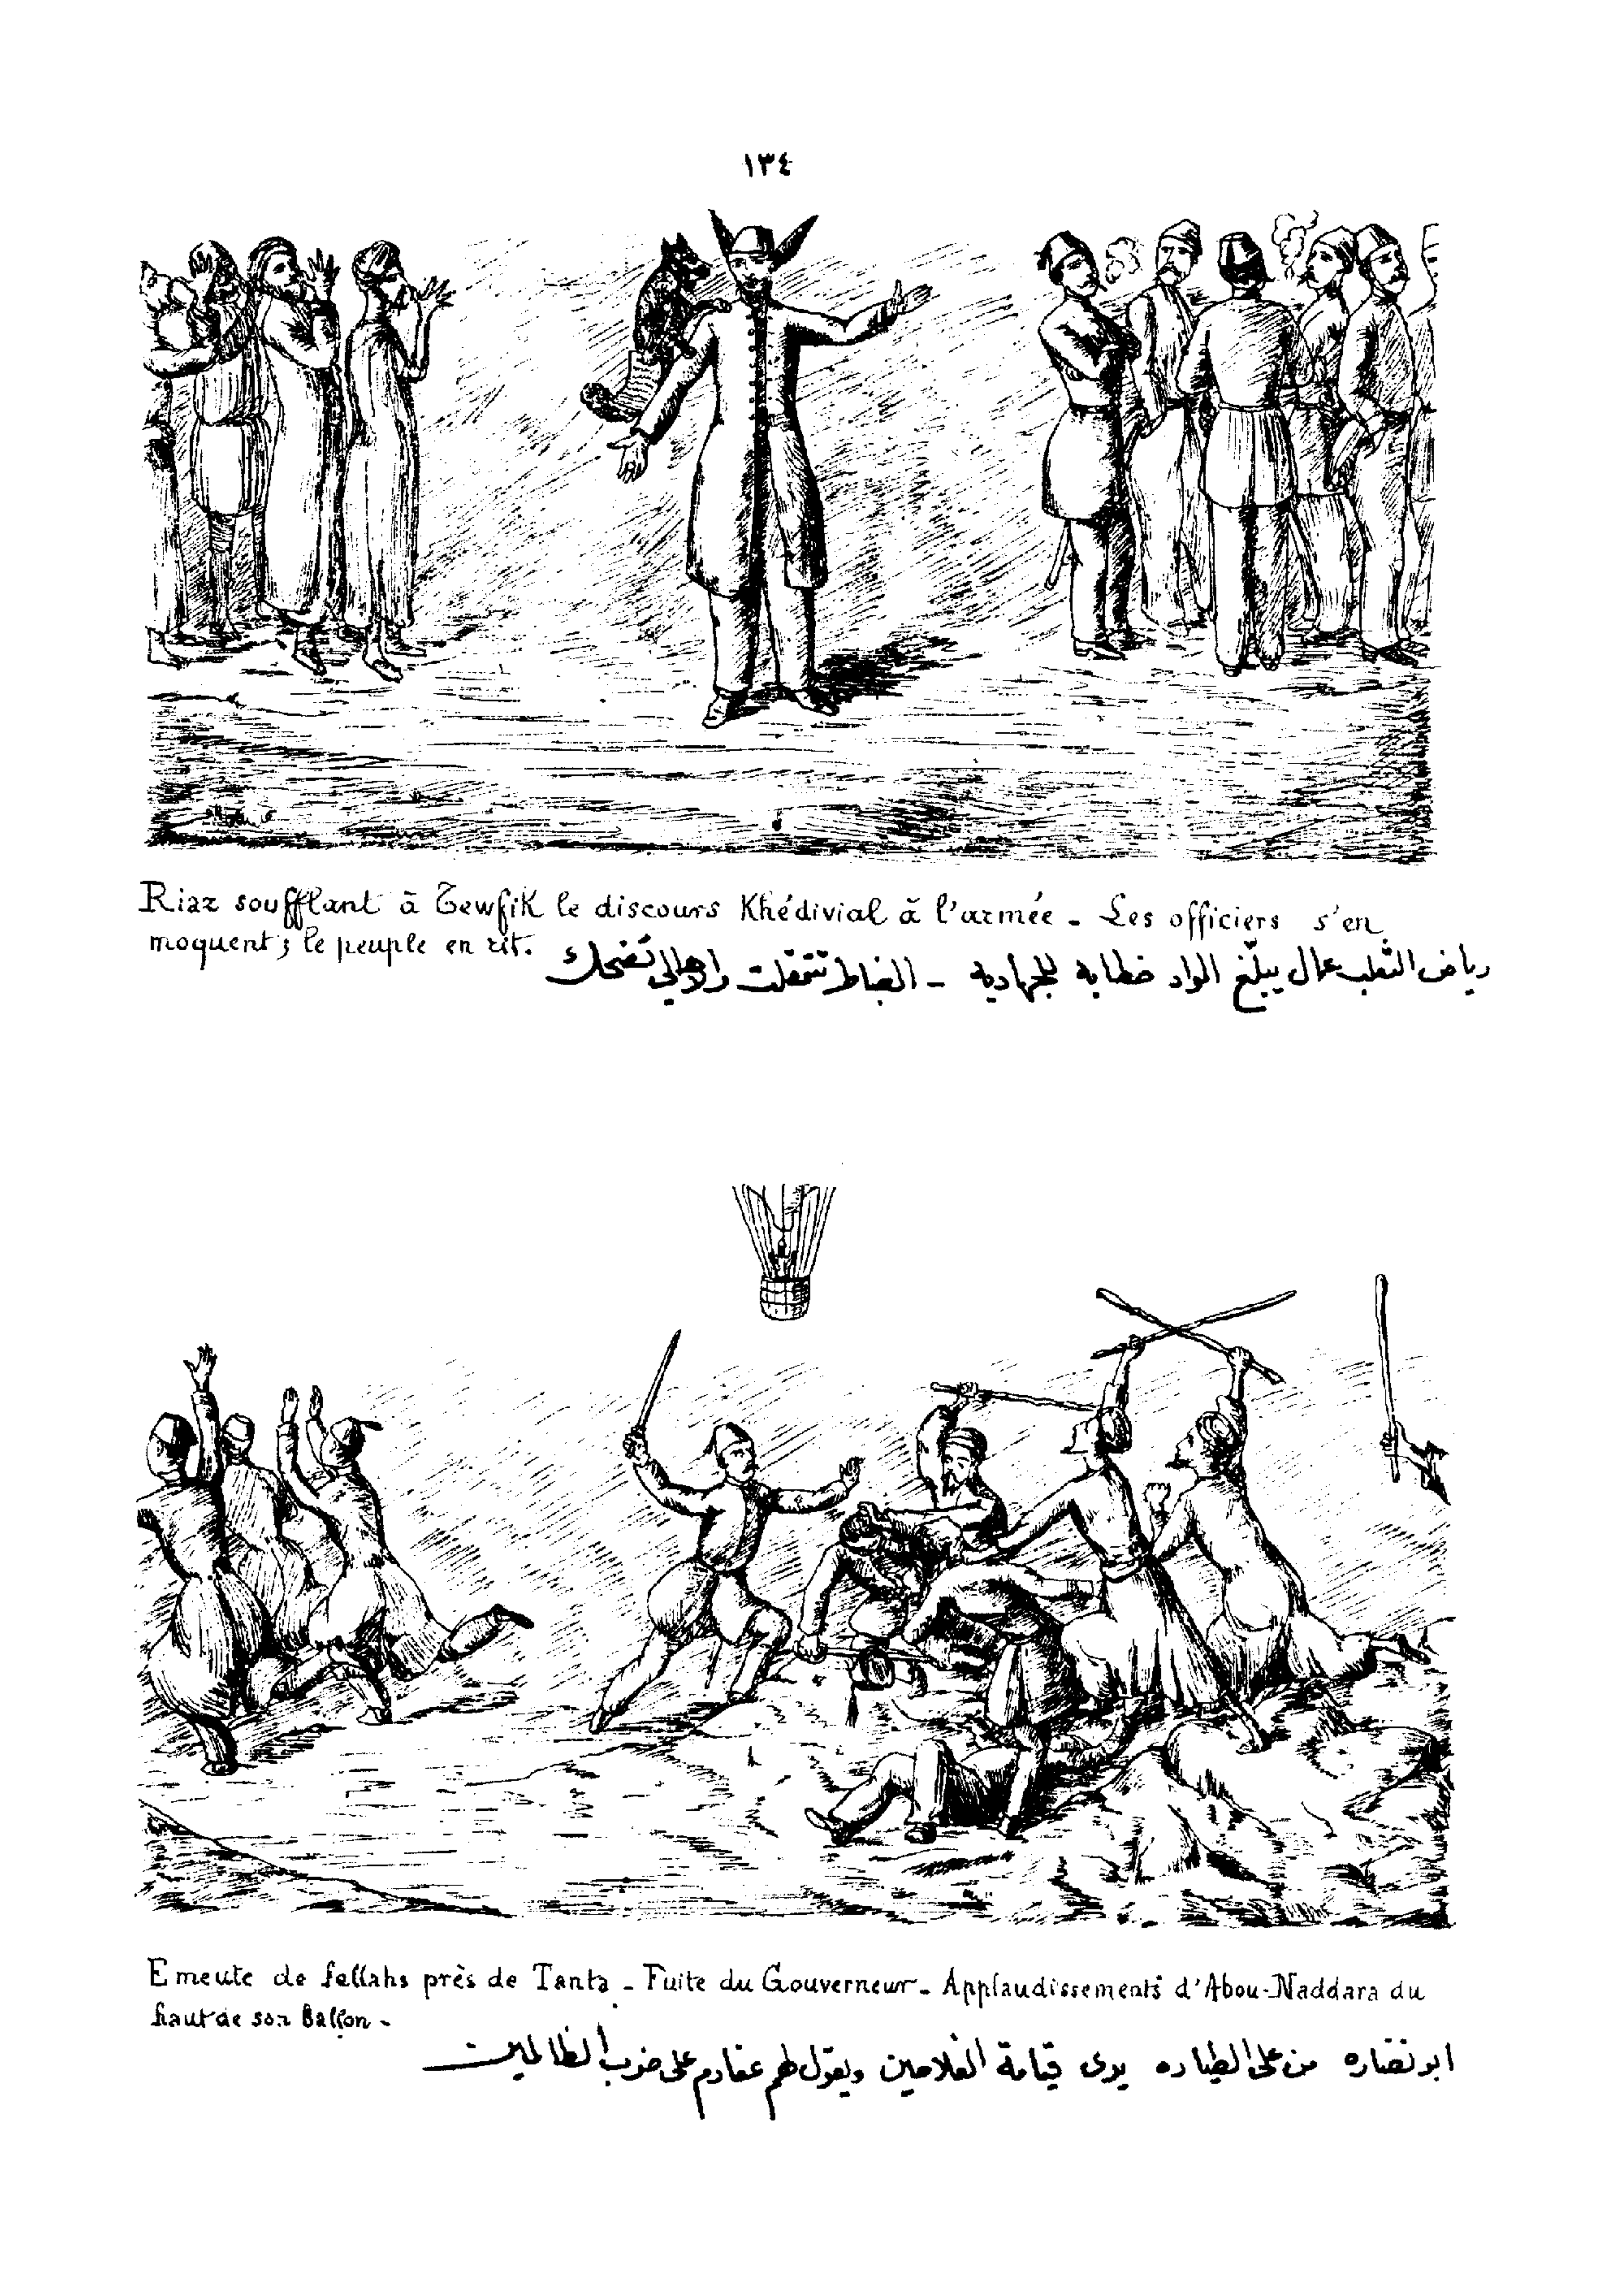 ١٣٤
Riaz soufflant à Tewfik le discours Khédivial à l'armée - Les officiers s'en
moquent ; le peuple en rit.
رياض الثعلب عمال يبلّغ الواد خطابه للجهاديه - الضباط تتمقلت والاهالي تضحك
Emeute de fellahs près de Tanta - Fuite du Gouverneur - Applaudissements d'Abou-Naddara du
haut de son Ballon -
ابو نضاره من على الطياره يرى قيامة الفلاحين ويقول لهم عفارم على ضرب الظالمين